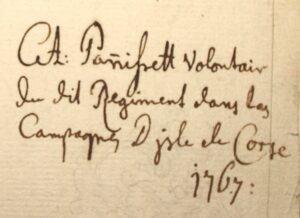 Volontair
du dit Regiment dans las
Campagnes D jsle de Corse
1767: